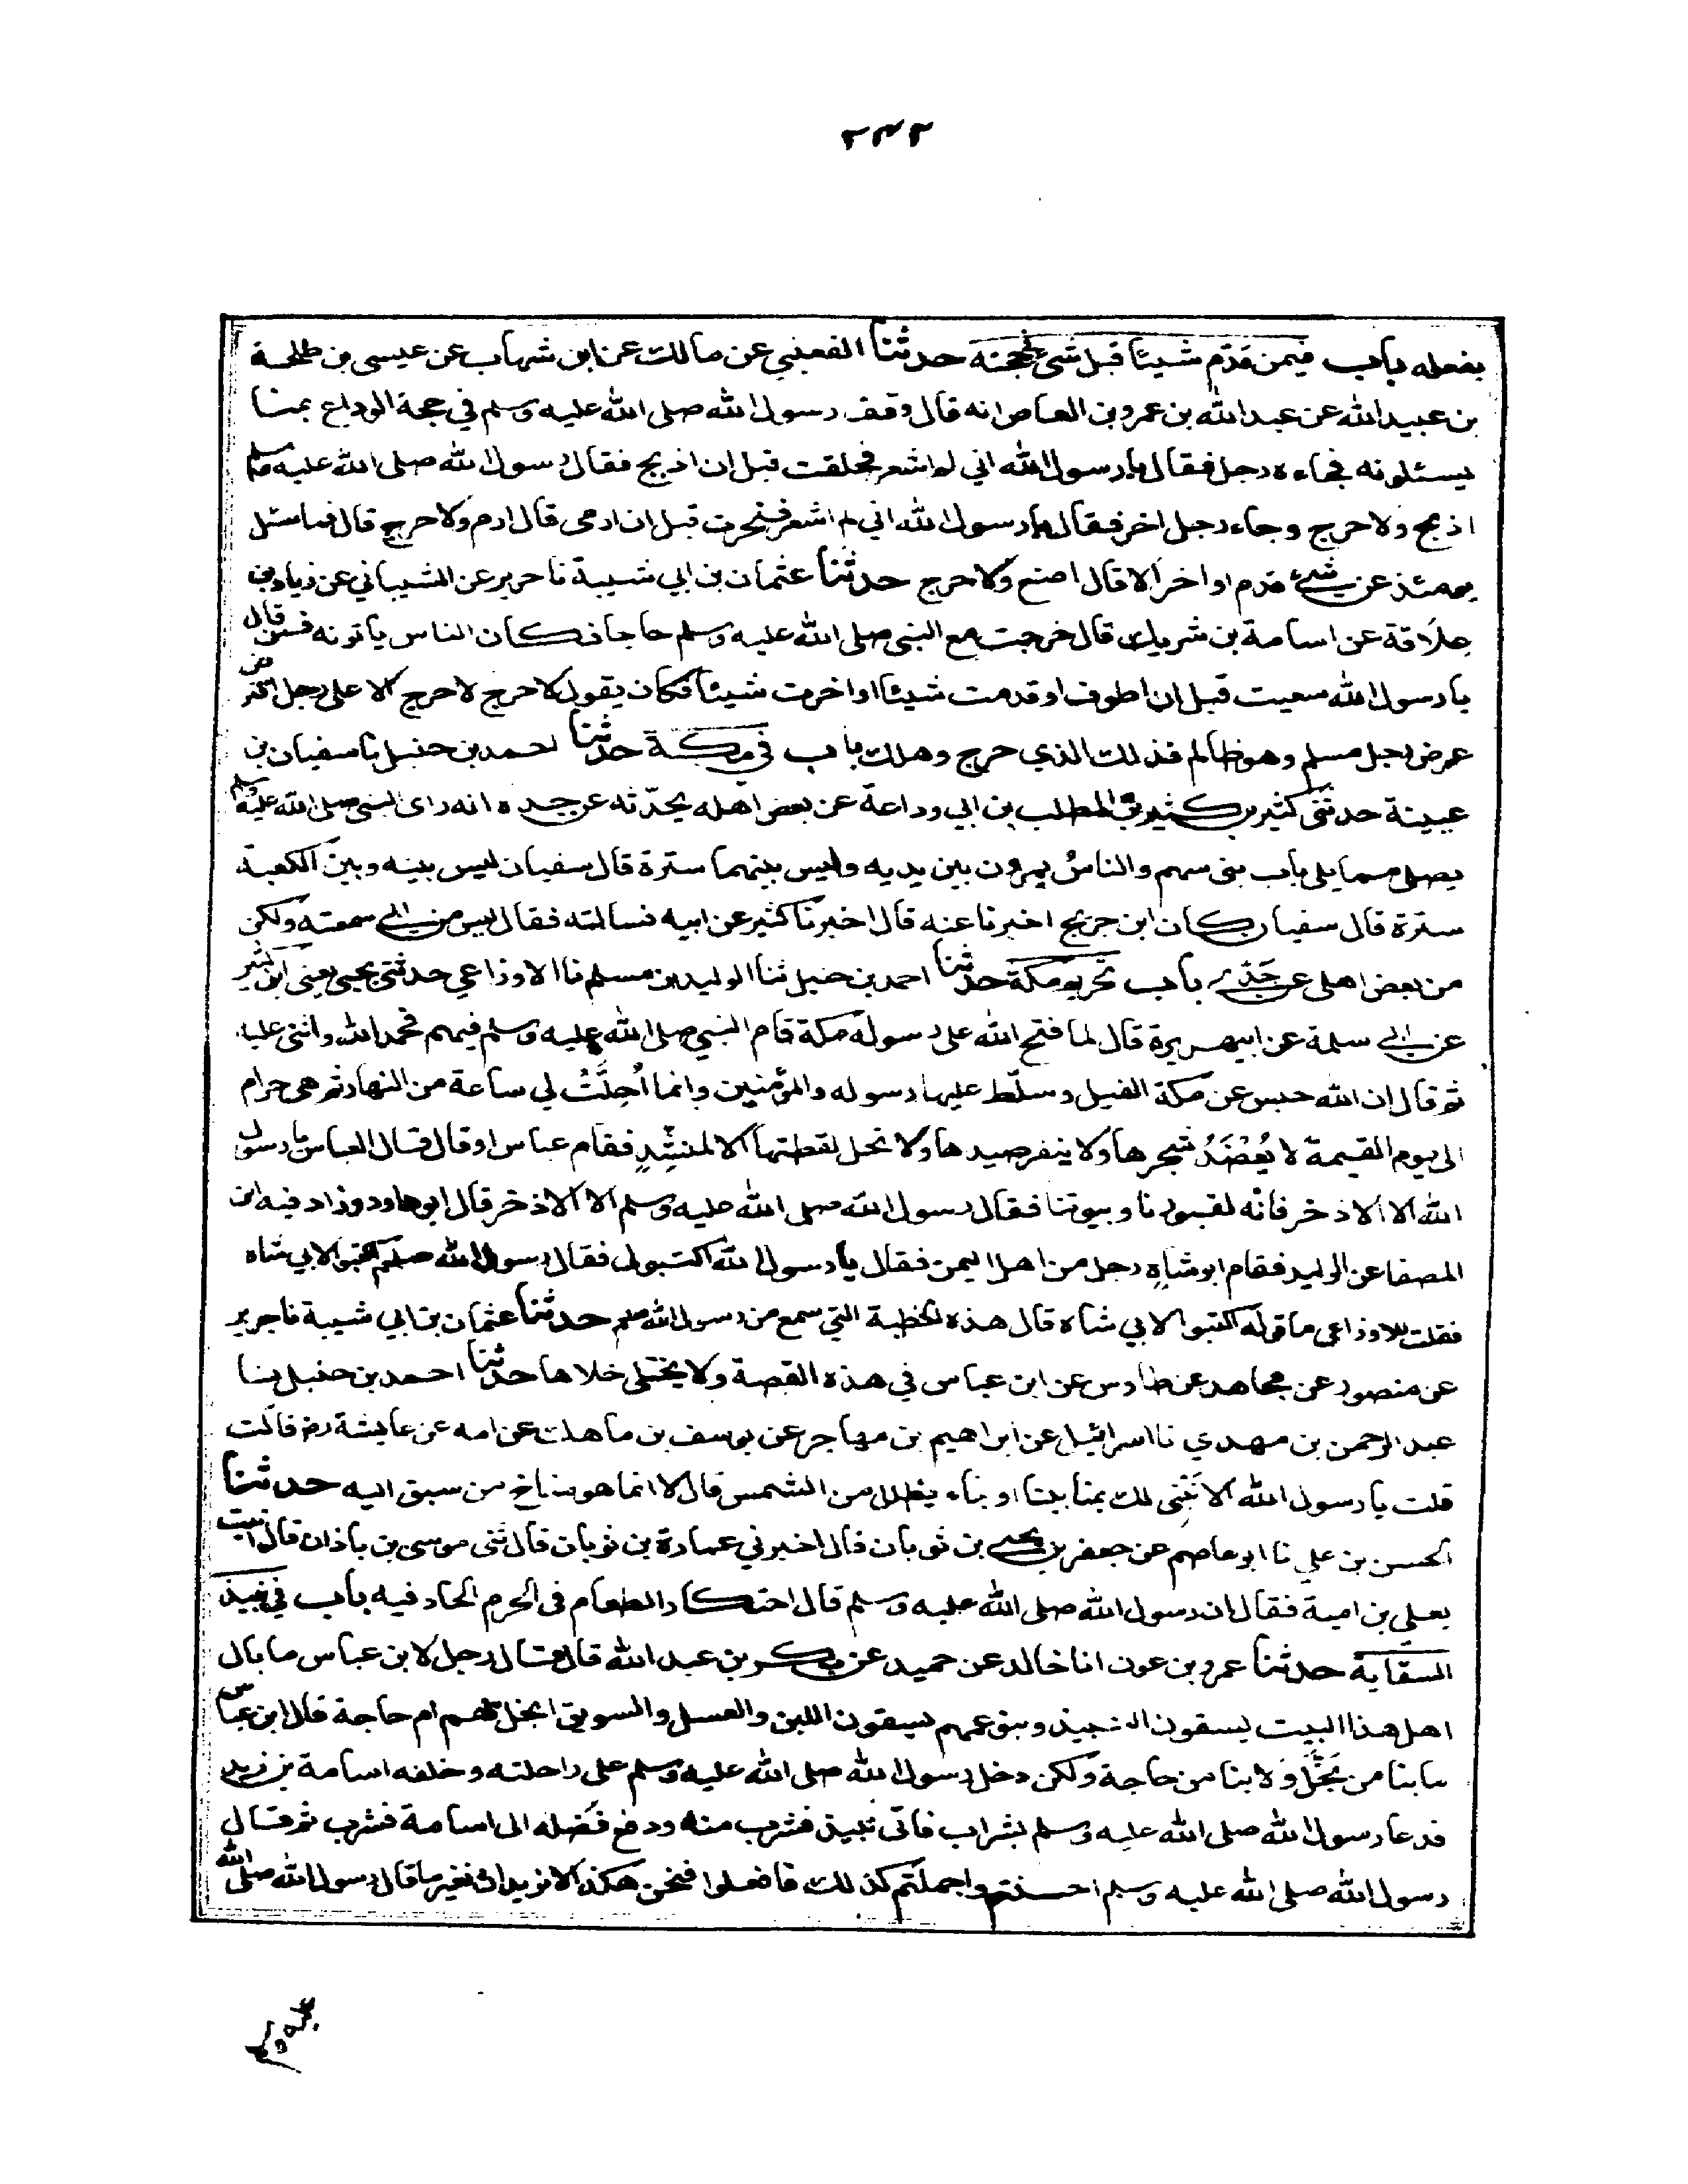 ٢٣٢
يفعله باب فيمن قدّم شيئا قبل شئ في حجته حدثنا القعنبي عن مالك عن ابن شهاب عن عيسى بن طلحة
بن عبيد الله عن عبد الله بن عمرو بن العاص انه قال وقف رسول الله صلى الله عليه وسلم في حجة الوداع بمنا
يسئلونه فجاءه رجل فقال يا رسول الله اني لم اشعر فحلقت قبل ان اذبح فقال رسول الله صلى الله عليه وسلم
اذبح ولا حرج وجاء رجل اخر فقال يا رسول الله اني لم اشعر فنحرت قبل ان ارمى قال ارم ولا حرج قال فما سئل
يومئذ عن شئ قدم او اخر الا قال اصنع ولا حرج حدثنا عثمان بن ابي شيبة نا جرير عن الشيباني عن زياد بن
علاقة عن اسامة بن شريك قال خرجت مع النبي صلى الله عليه وسلم حاجا فكان الناس ياتونه فمن قال
يا رسول الله سعيت قبل ان اطوف او قدمت شيئا او اخرت شيئا فكان يقول لا حرج لا حرج الا على رجل اقترض
عرض رجل مسلم وهو ظالم فذلك الذي حرج وهلك باب في مكة حدثنا احمد بن حنبل نا سفيان بن
عيينة حدثني كثير بن كثير بن المطلب بن ابي وداعة عن بعض اهله يحدّثه عن جده انه راى النبي صلى الله عليه وسلم
يصلى مما يلى باب بنى سهم والناسُ يمرون بين يديه وليس بينهما سترة قال سفيان ليس بينه وبين الكعبة
سترة قال سفيان كان ابن جريج اخبرنا عنه قال اخبرنا كثير عن ابيه فسالته فقال ليس من ابي سمعته ولكن
من بعض اهلى عن جَدّي باب تحريم مكة حدثنا احمد بن حنبل ثنا الوليد بن مسلم نا الاوزاعي حدثني يحيى يعني ابن كثير
عن ابي سلمة عن ابي هريرة قال لما فتح الله على رسوله مكة قام النبي صلى الله عليه وسلم فيهم فحمد الله واثنى عليه
ثم قال ان الله حبس عن مكة الفيل وسلّط عليها رسوله والمؤمنين وانما اُحِلَّتْ لي ساعة من النهار ثم هى حرام
الى يوم القيمة لا يُعْضَدُ شجرها ولا ينفر صيدها ولا تحل لقطتها الا لمنشِدٍ فقام عباس او قال قال العباس يا رسول
الله الا الاذخر فانه لقبورنا وبيوتنا فقال رسول الله صلى الله عليه وسلم الا الاذخر قال ابو داود وزاد فيه ابن
المصفا عن الوليد فقام ابو شاهٍ رجل من اهل اليمن فقال يا رسول الله اكتبولى فقال رسول الله صلعم اكتبوا لابي شاه
فقلت للاوزاعى ما قوله اكتبوا لابي شاه قال هذه الخطبة التي سمع من رسول الله صلعم حدثنا عثمان بن ابي شيبة نا جرير
عن منصور عن مجاهد عن طاوس عن ابن عباس في هذه القصة ولا يختلى خلاها حدثنا احمد بن حنبل ثنا
عبد الرحمن بن مهدي نا اسرائيل عن ابراهيم بن مهاجر عن يوسف بن ماهك عن امه عن عايشة رض قالت
قلت يا رسول الله الا نَبْنِى لك بمنا بيتا او بناء يظلك من الشمس قال لا انما هو مناخ من سبق اليه حدثنا
الحسن بن علي نا ابو عاصم عن جعفر بن يحيى بن ثوبان قال اخبرني عمارة بن ثوبان قال ثنى موسى بن باذان قال اتيت
يعلى بن امية فقال ان رسول الله صلى الله عليه وسلم قال احتكار الطعام في الحرم الحاد فيه باب في نبيذ
السقاية حدثنا عمرو بن عون انا خالد عن حميد عن بكر بن عبد الله قال قال رجل لابن عباس ما بال
اهل هذا البيت يسقون النبيذ وبنو عمهم يسقون اللبن والعسل والسويق ابخل بهم ام حاجة قال ابن عباس
ما بنا من بُخْلٍ ولا بنا من حاجة ولكن دخل رسول الله صلى الله عليه وسلم على راحلته وخلفه اسامة بن زيد
فدعا رسول الله صلى الله عليه وسلم بشراب فاتى بنبيذ فشرب منه ودفع فضله الى اسامة فشرب ثم قال
رسول الله صلى الله عليه وسلم احسنتم واجملتم كذلك فافعلوا فنحن هكذا لا نريد ان نغير ما قال رسول الله صلى الله